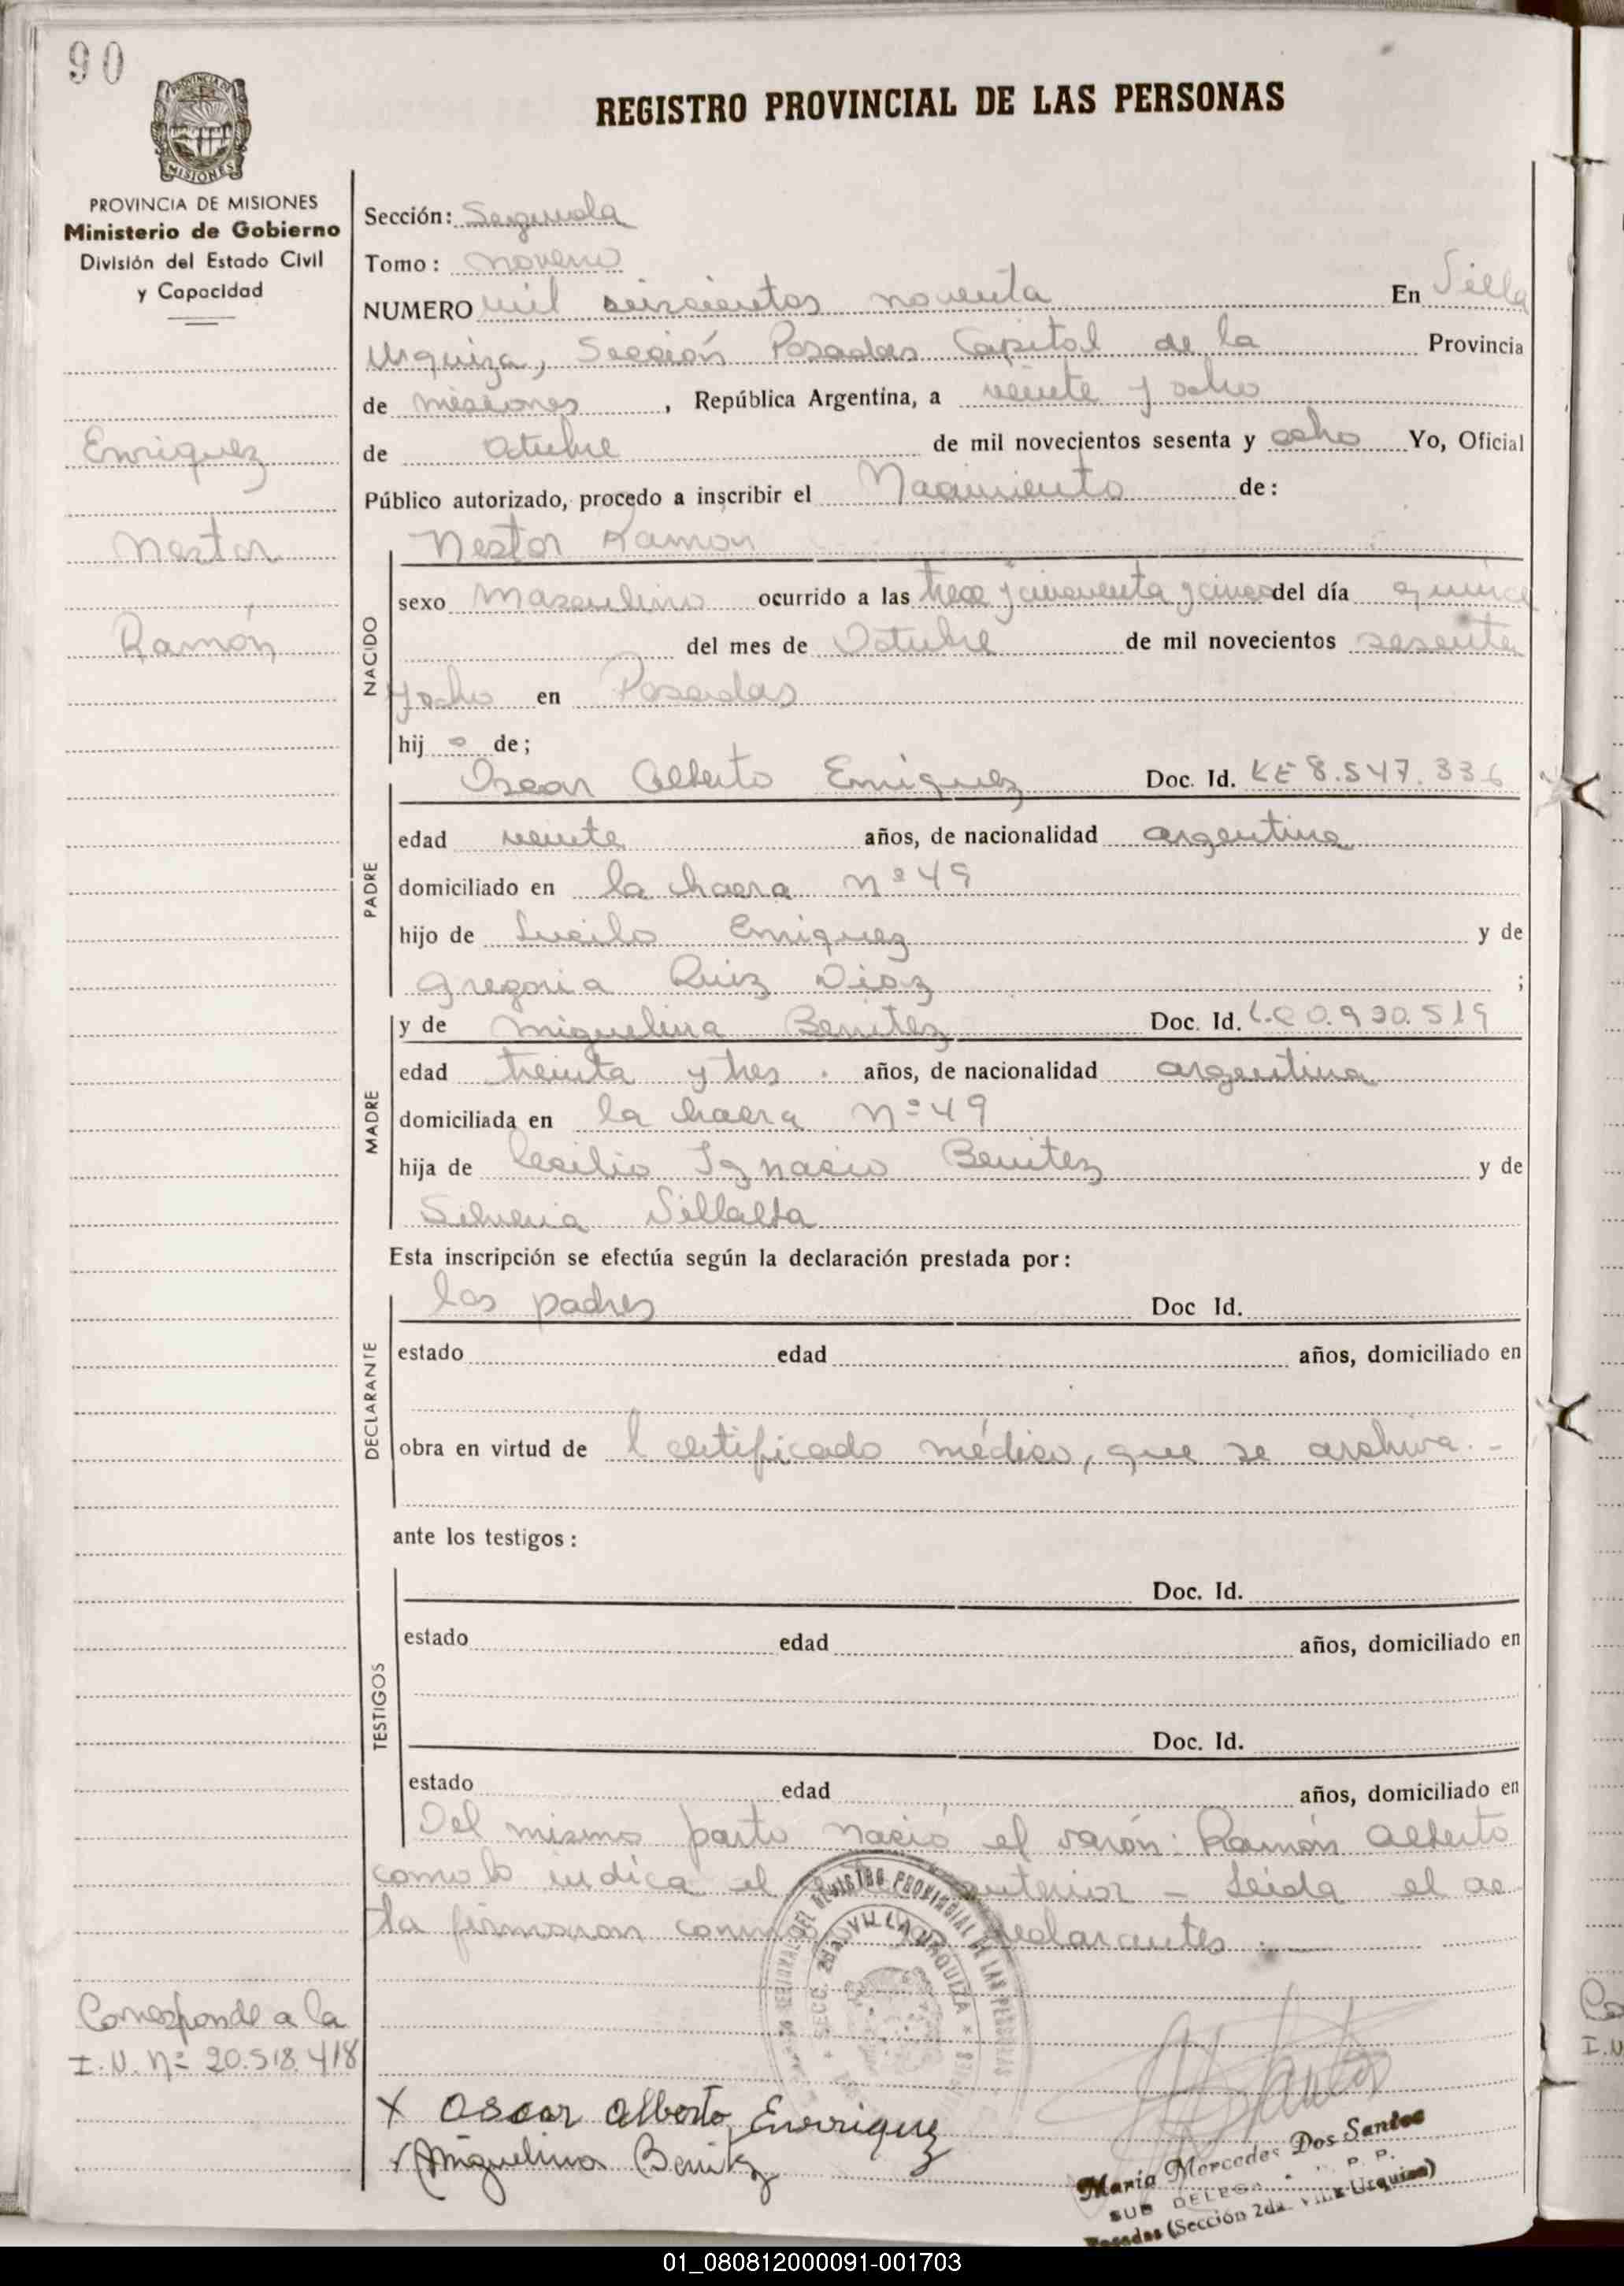 90
REGISTRO PROVINCIAL DE LAS PERSONAS
MISIONES
PROVINCIA DE MISIONES
Ministerio de Gobierno
División del Estado Civil
y Capacidad
Enriquez
Nestor
Ramón
Sección: Segunda
Tomo: noveno
NUMERO mil seiscientos noventa En Villa
Urquiza, Sección Posadas Capital de la Provincia
de misiones, República Argentina, a veinte y ocho
de otubre de mil novecientos sesenta y ocho Yo, Oficial
Público autorizado, procedo a inscribir el Nacimiento de:
Nestor Ramon
NACIDO
sexo Masculino ocurrido a las trece y cincuenta y cinco del día quince
del mes de Octubre de mil novecientos sesenta
y ocho en Posadas
hij o de;
Oscar Alberto Enriquez Doc. Id. LE 8.547.336
PADRE
edad veinte años, de nacionalidad argentina
domiciliado en la chacra nº 49
hijo de Lucilo Enriquez y de
Gregoria Ruiz Diaz ;
y de Miguelina Benitez Doc. Id. L.C 0.930.519
MADRE
edad treinta y tres años, de nacionalidad argentina
domiciliada en la chacra nº 49
hija de Cecilio Ignacio Benitez y de
Silveria Villalba
Esta inscripción se efectúa según la declaración prestada por:
los padres Doc Id.
DECLARANTE
estado edad años, domiciliado en
obra en virtud de l certificado médico, que se archiva.-
ante los testigos:
TESTIGOS
Doc. Id.
estado edad años, domiciliado en
Doc. Id.
estado edad años, domiciliado en
Del mismo parto nació el varón: Ramón Alberto
como lo indica el anterior - Leida el ac
ta firmaron conmigo los declarantes.-
REGISTRO PROVINCIAL DE LAS PERSONAS
SECC. 2da. VILLA URQUIZA
Corresponde a la
I.N. nº 20.518.418
X Oscar Alberto Enrriquez
X Miguelina Benitez
Maria Mercedes Dos Santos
SUB DELEGA R. P. P.
Posadas (Sección 2da. Villa Urquiza)
01_080812000091-001703